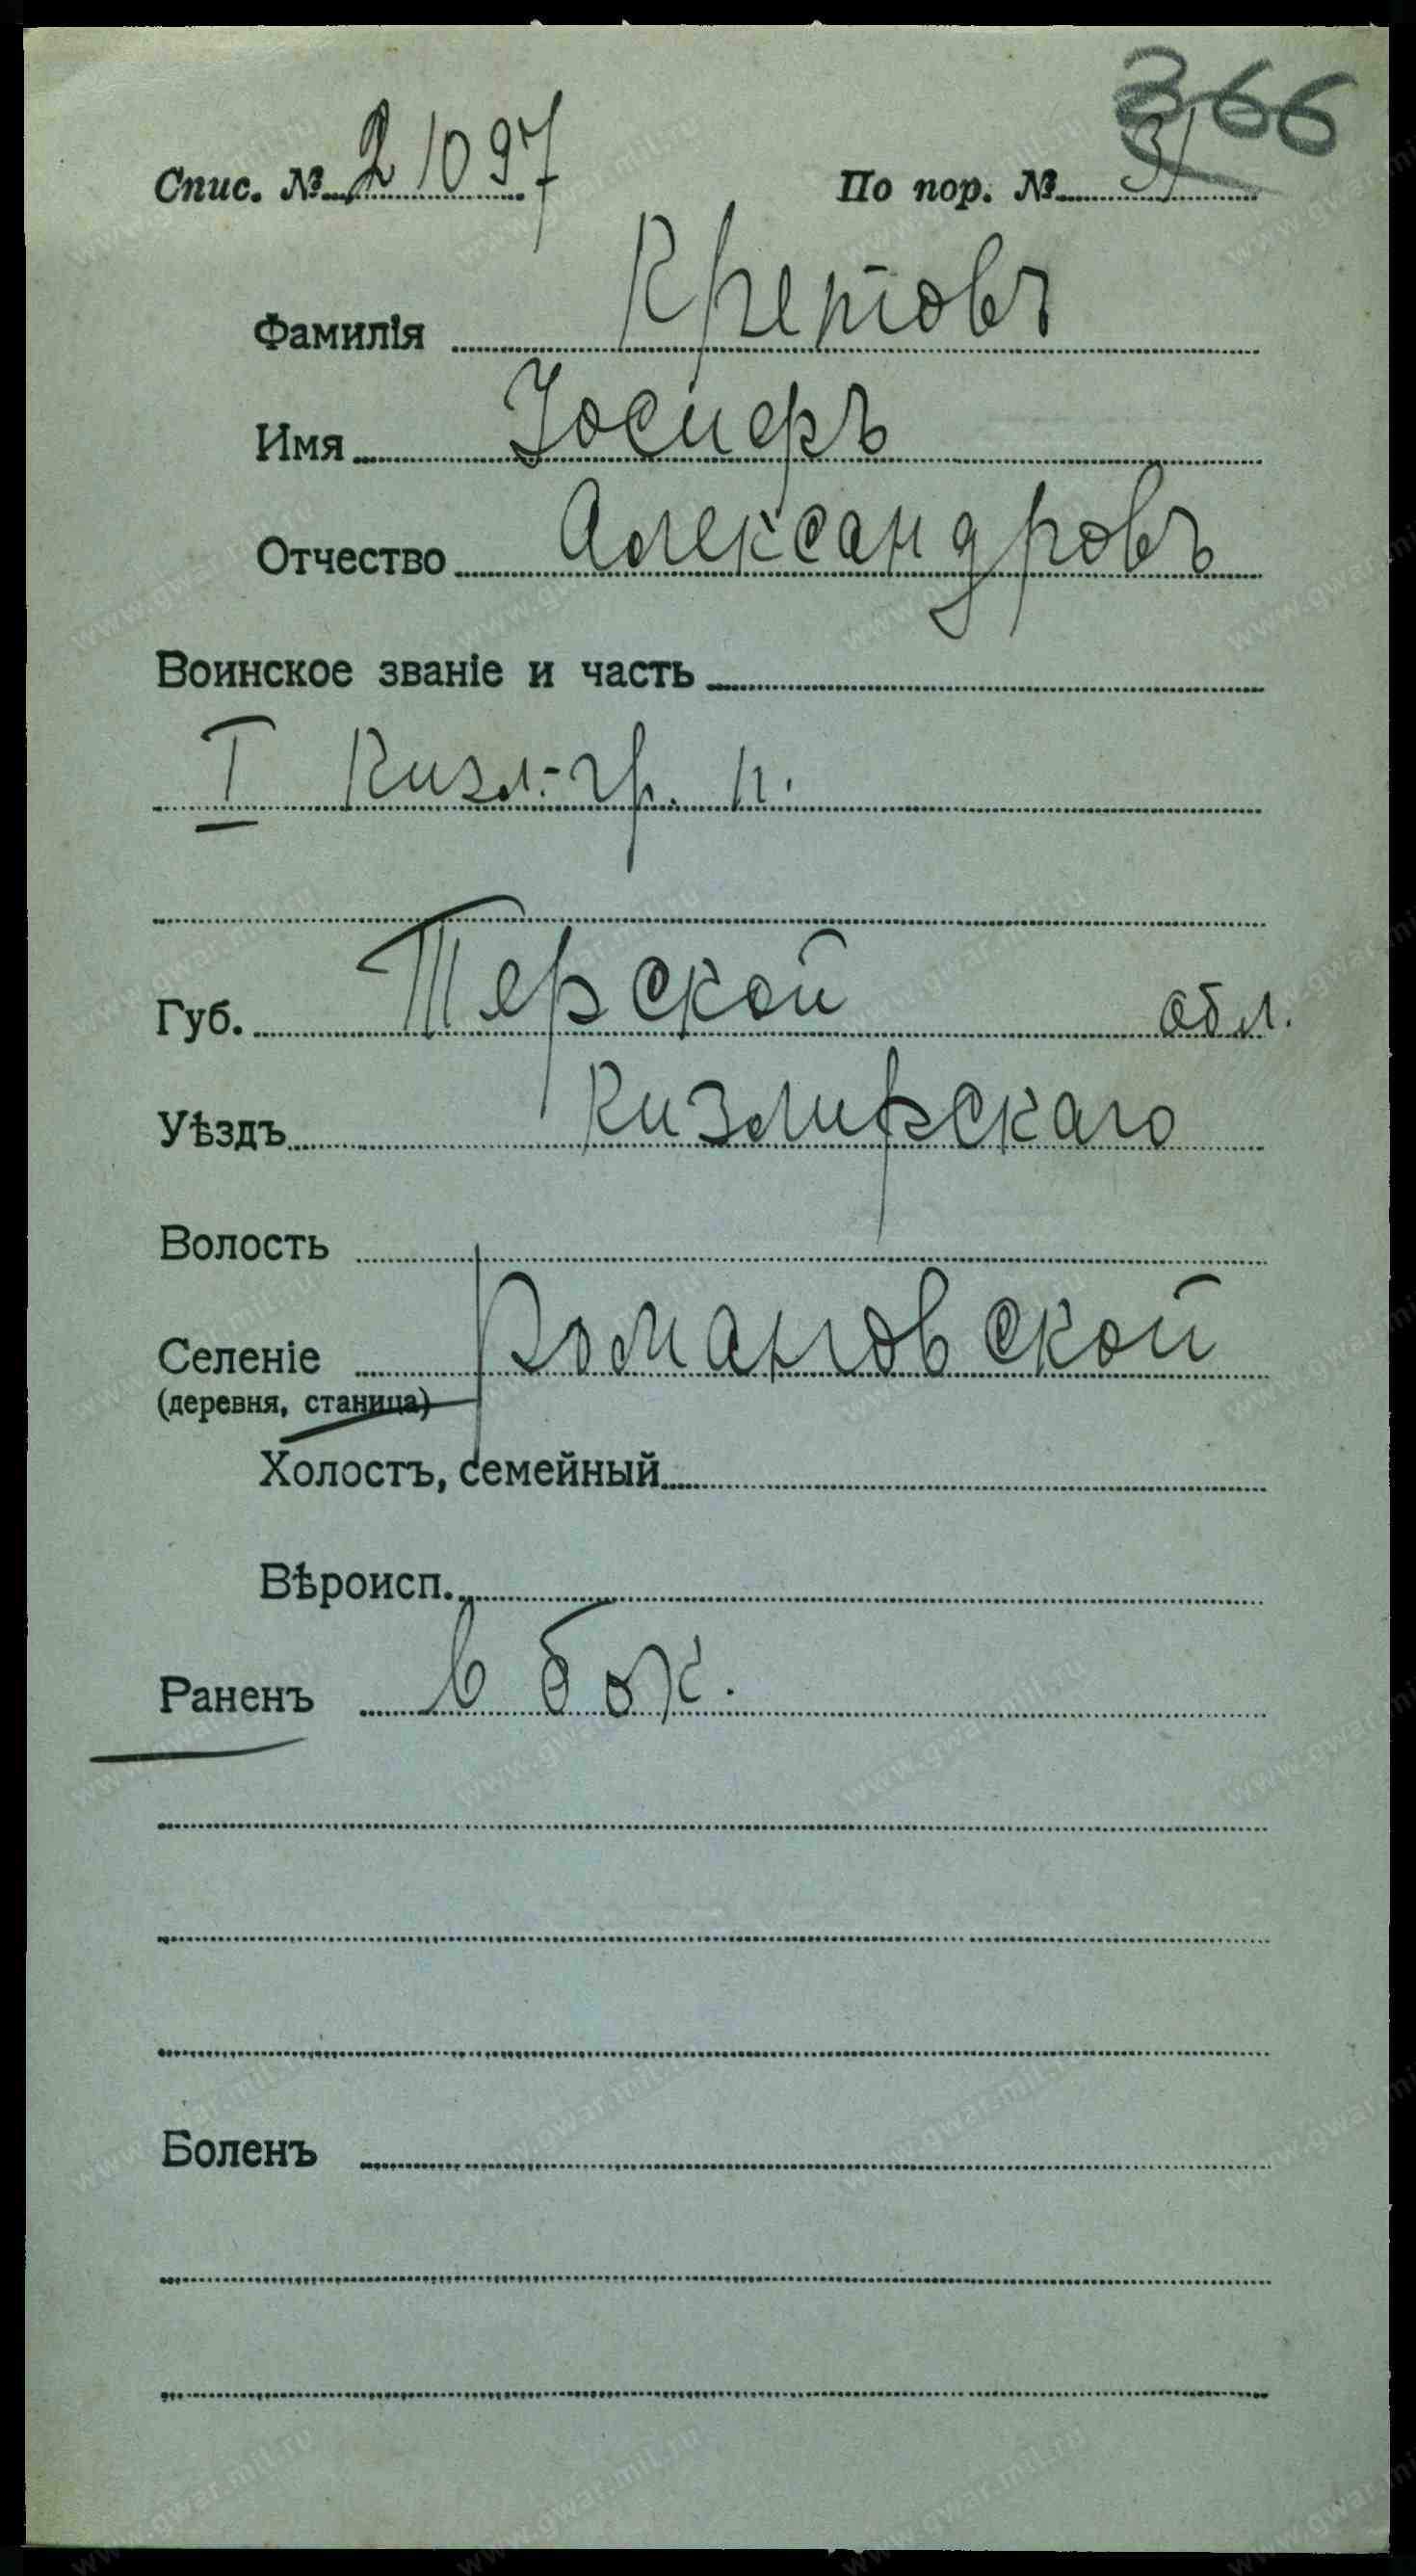 366
Спис. № 21097 По пор. № 31
Фамилія Кретовъ
Имя Іосифъ
Отчество Александровъ
Воинское званіе и часть
I Кизл.-гр. п.
Губ. Терской обл.
Уѣздъ Кизлярскаго
Волость
Селеніе Романовской
(деревня, станица)
Холостъ, семейный
Вѣроисп.
Раненъ в бок.
Боленъ